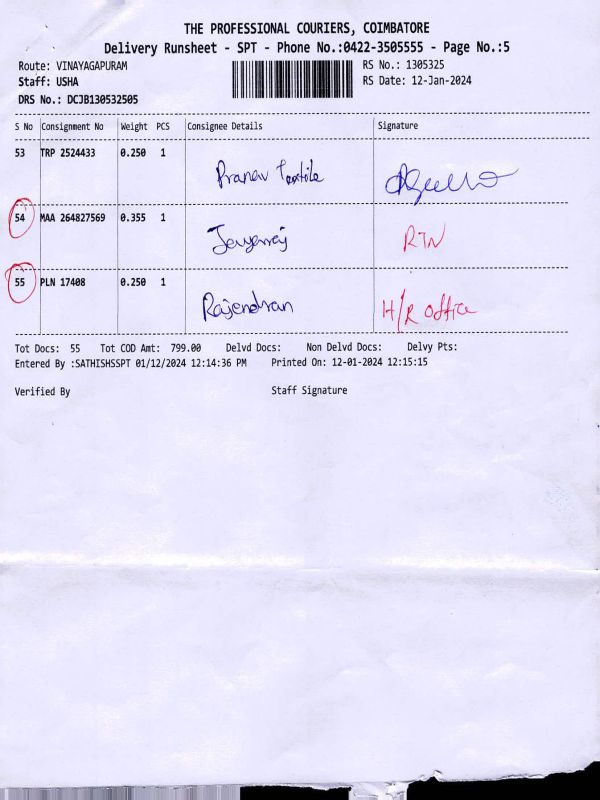 THE PROFESSIONAL COURIERS, COIMBATORE
Delivery Runsheet - SPT - Phone No.:0422-3505555 - Page No.:5
Route: VINAYAGAPURAM RS No.: 1305325
Staff: USHA RS Date: 12-Jan-2024
DRS No.: DCJB130532505
S No Consignment No Weight PCS Consignee Details Signature
53 TRP 2524433 0.250 1 Pranav Textile
54 MAA 264827569 0.355 1 RTN
55 PLN 17408 0.250 1 Rajendran H/R Office
Tot Docs: 55 Tot COD Amt: 799.00 Delvd Docs: Non Delvd Docs: Delvy Pts:
Entered By :SATHISHSSPT 01/12/2024 12:14:36 PM Printed On: 12-01-2024 12:15:15
Verified By Staff Signature